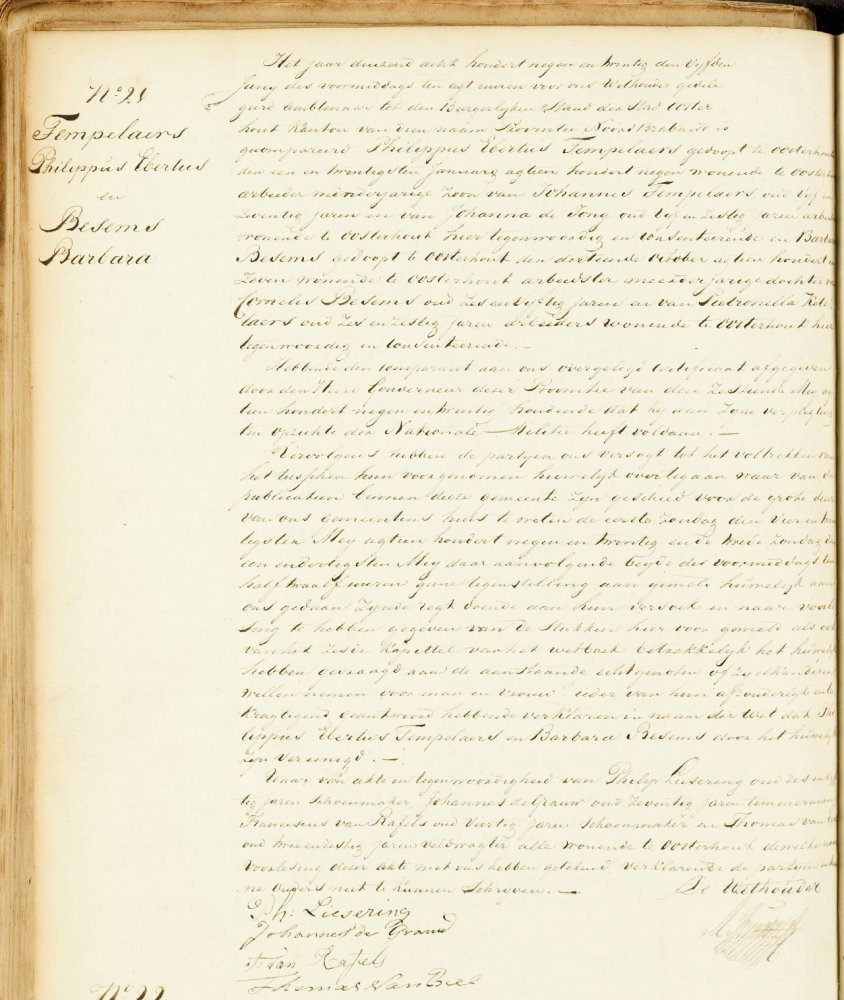 N° 21
Tempelaers
Philippus Ebertus
en
Besems
Barbara
Het jaar duizend acht hondert negen en twintig den vyfden
Juny des voormiddags ten agt uuren voor ons Wethouder gedele
geerd ambtenaar tot den Burgerlyken Stand der Stad Ooster
hout kanton van dien naam Provintie Noord Braband is
gecompareerd Philippus Ebertus Tempelaers gedoopt te Oosterhout
den een en twintigsten January agtien hondert negen wonende te Oosterh
arbeider minderjarige zoon van Johannes Tempelaers oud vyf en
zeventig jaren en van Johanna de Jong oud vyf en zestig jaren arbei
wonende te Oosterhout hier tegenwoordig en consenteerende en Barba
Besems gedoopt te Oosterhout den dertiende October agtien hondert
zeven wonende te Oosterhout arbeidster meerderjarige dochter va
Cornelis Besems oud zes en vyftig jaren en van Petronella Kete
laers oud zes en zestig jaren arbeiders wonende te Oosterhout hier
tegenwoordig en consenteerende. —
Hebbende den comparant aan ons overgelegd certificaat afgegeven
door den Heere Gouverneur dezer Provintie van den zestiende Mey ag
tien hondert negen en twintig houdende dat hy aan zyne verpligting
ten opzichte der Nationale Militie heeft voldaan. —
Vervolgens hebben de partyen ons versogt tot het voltrekken van
het tusschen hun voorgenomen huwelyk over te gaan waar van de
publicatien binnen deeze gemeente zyn geschied voor de grote deur
van ons gemeentens huis te weten de eerste zondag den vier en twin
tigsten Mey agtien hondert negen en twintig en de twede zondag den
een en dertigsten Mey daar aanvolgende beyde des voormiddags ten
half twaalf uuren geene tegenstelling aan gemeld huwelyk aan
ons gedaan zynde regt doende aan hun versoek en naar voorle
sing te hebben gegeven van de stukken hier voor gemeld als ook
van het zesde kapittel van het wetboek betrekkelyk het huwelyk
hebben gevraagd aan de aanstaande echtgenoten of zy elkanderen
willen nemen voor man en vrouw ieder van hun afzonderlyk en be
kragtigend geantwoord hebbende verklaren in naam der Wet dat Phi
lippus Ebertus Tempelaers en Barbara Besems door het huwelyk
zyn vereenigd. —
Waar van akte in tegenwoordigheid van Philip Liesering oud zes en
tig jaren schoenmaker Johannes de Grauw oud zeventig jaren timmerman
Franciscus van Rafels oud veertig jaren schoenmaker en Thomas van
oud twee en zestig jaren veldwagter alle wonende te Oosterhout dewelke na
voorlesing dezer akte met ons hebben getekend verklarende de partyen
ne ouders niet te kunnen schryven. — De Wethouder
Ph: Liesering
Johannes de Grauw
F: van Rafels
Thomas van
N° 22